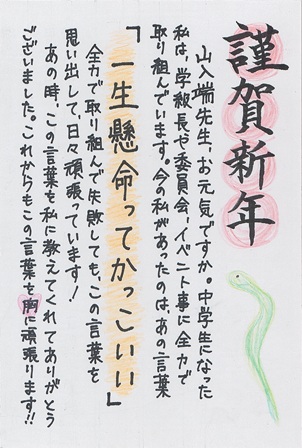 謹賀新年
山入端先生、お元気ですか。中学生になった
私は、学級長や委員会、イベント事に全力で
取り組んでいます。今の私があったのは、あの言葉
「一生懸命ってかっこいい」
全力で取り組んで失敗しても、この言葉を
思い出して、日々頑張っています！
あの時、この言葉を私に教えてくれてありがとう
ございました。これからもこの言葉を胸に頑張ります!!